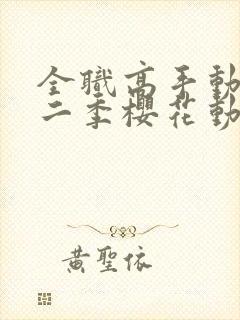 全職高手動
二季櫻花動
黃聖依